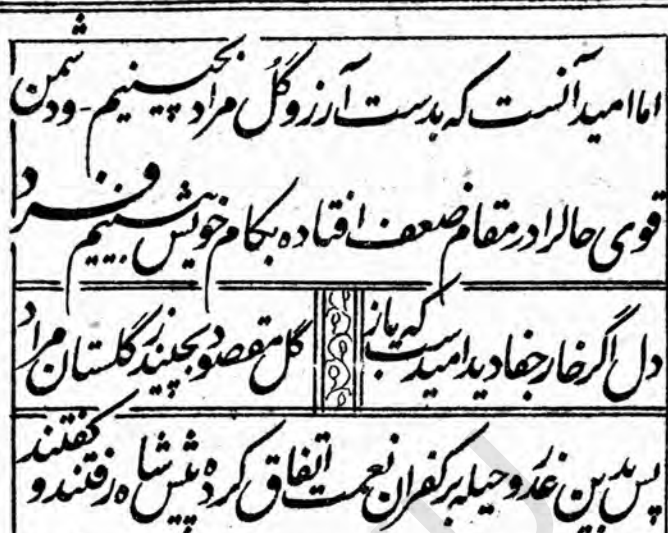 اما امید آنست که بدست آرزو گل مراد بچینیم - ودشمن
قوی حالرا در مقام ضعف افتاده بکام خویش ببینیم فرد
دل اگر خار جفا دید امیدست که باز
گل مقصود بچیند ز گلستان مراد
پس بدین غدر و حیله بر کفران نعمت اتفاق کرده پیش شاه رفتند و گفتند